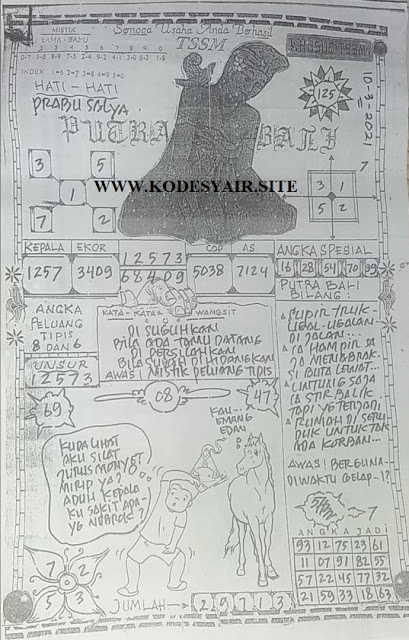 MISTIK
LAMA - BARU
Semoga Usaha Anda Berhasil
TSSM
1 2 3 4 5 6 7 8 9 0
INDEX 1=6 2=7 3=8 4=9 5=0
HATI - HATI
PRABU SALYA
PUTRA BALI
125
10-3-2021
3 5
1
7 2
7
3 1
5 2
WWW.KODESYAIR.SITE
KEPALA EKOR
1257 3409
12573
68409
COP AS
5038 7124
ANGKA SPESIAL
16 28 54 70 39
ANGKA
PELUANG
TIPIS
8 DAN 6
UNSUR
12573
69
KATA - KATA WANGSIT
DI SUGUHKAN
BILA ADA TAMU DATANG
DI PERSILAHKAN
BILA SUDAH DI HIDANGKAN
AWAS! MISTIK PELUANG TIPIS
08
47
PUTRA BALI
BILANG:
SUPIR TRUK
UGAL-UGALAN
DI JALAN...
IA HAMPIR SA
JA MENABRAK
SI BUTA LEWAT...
UNTUNG SAJA
IA STIR BALIK
RUMAH DI
DUK UNTUK TAK
ADA KORBAN...
AWAS! BERGUNA-
DI WAKTU GELAP-!?
KUDA LIHAT
AKU SILAT
JURUS MONYET
MIRIP YA?
ADUH KEPALA
KU SAKIT ADA-
YG NGAROK?
KAU...
EMANG
EDAN
7 2
5 3
JUMLAH → 29713
7
ANGKA JADI
93 12 75 23 61
11 07 91 82 55
57 22 45 77 32
21 59 33 18 63